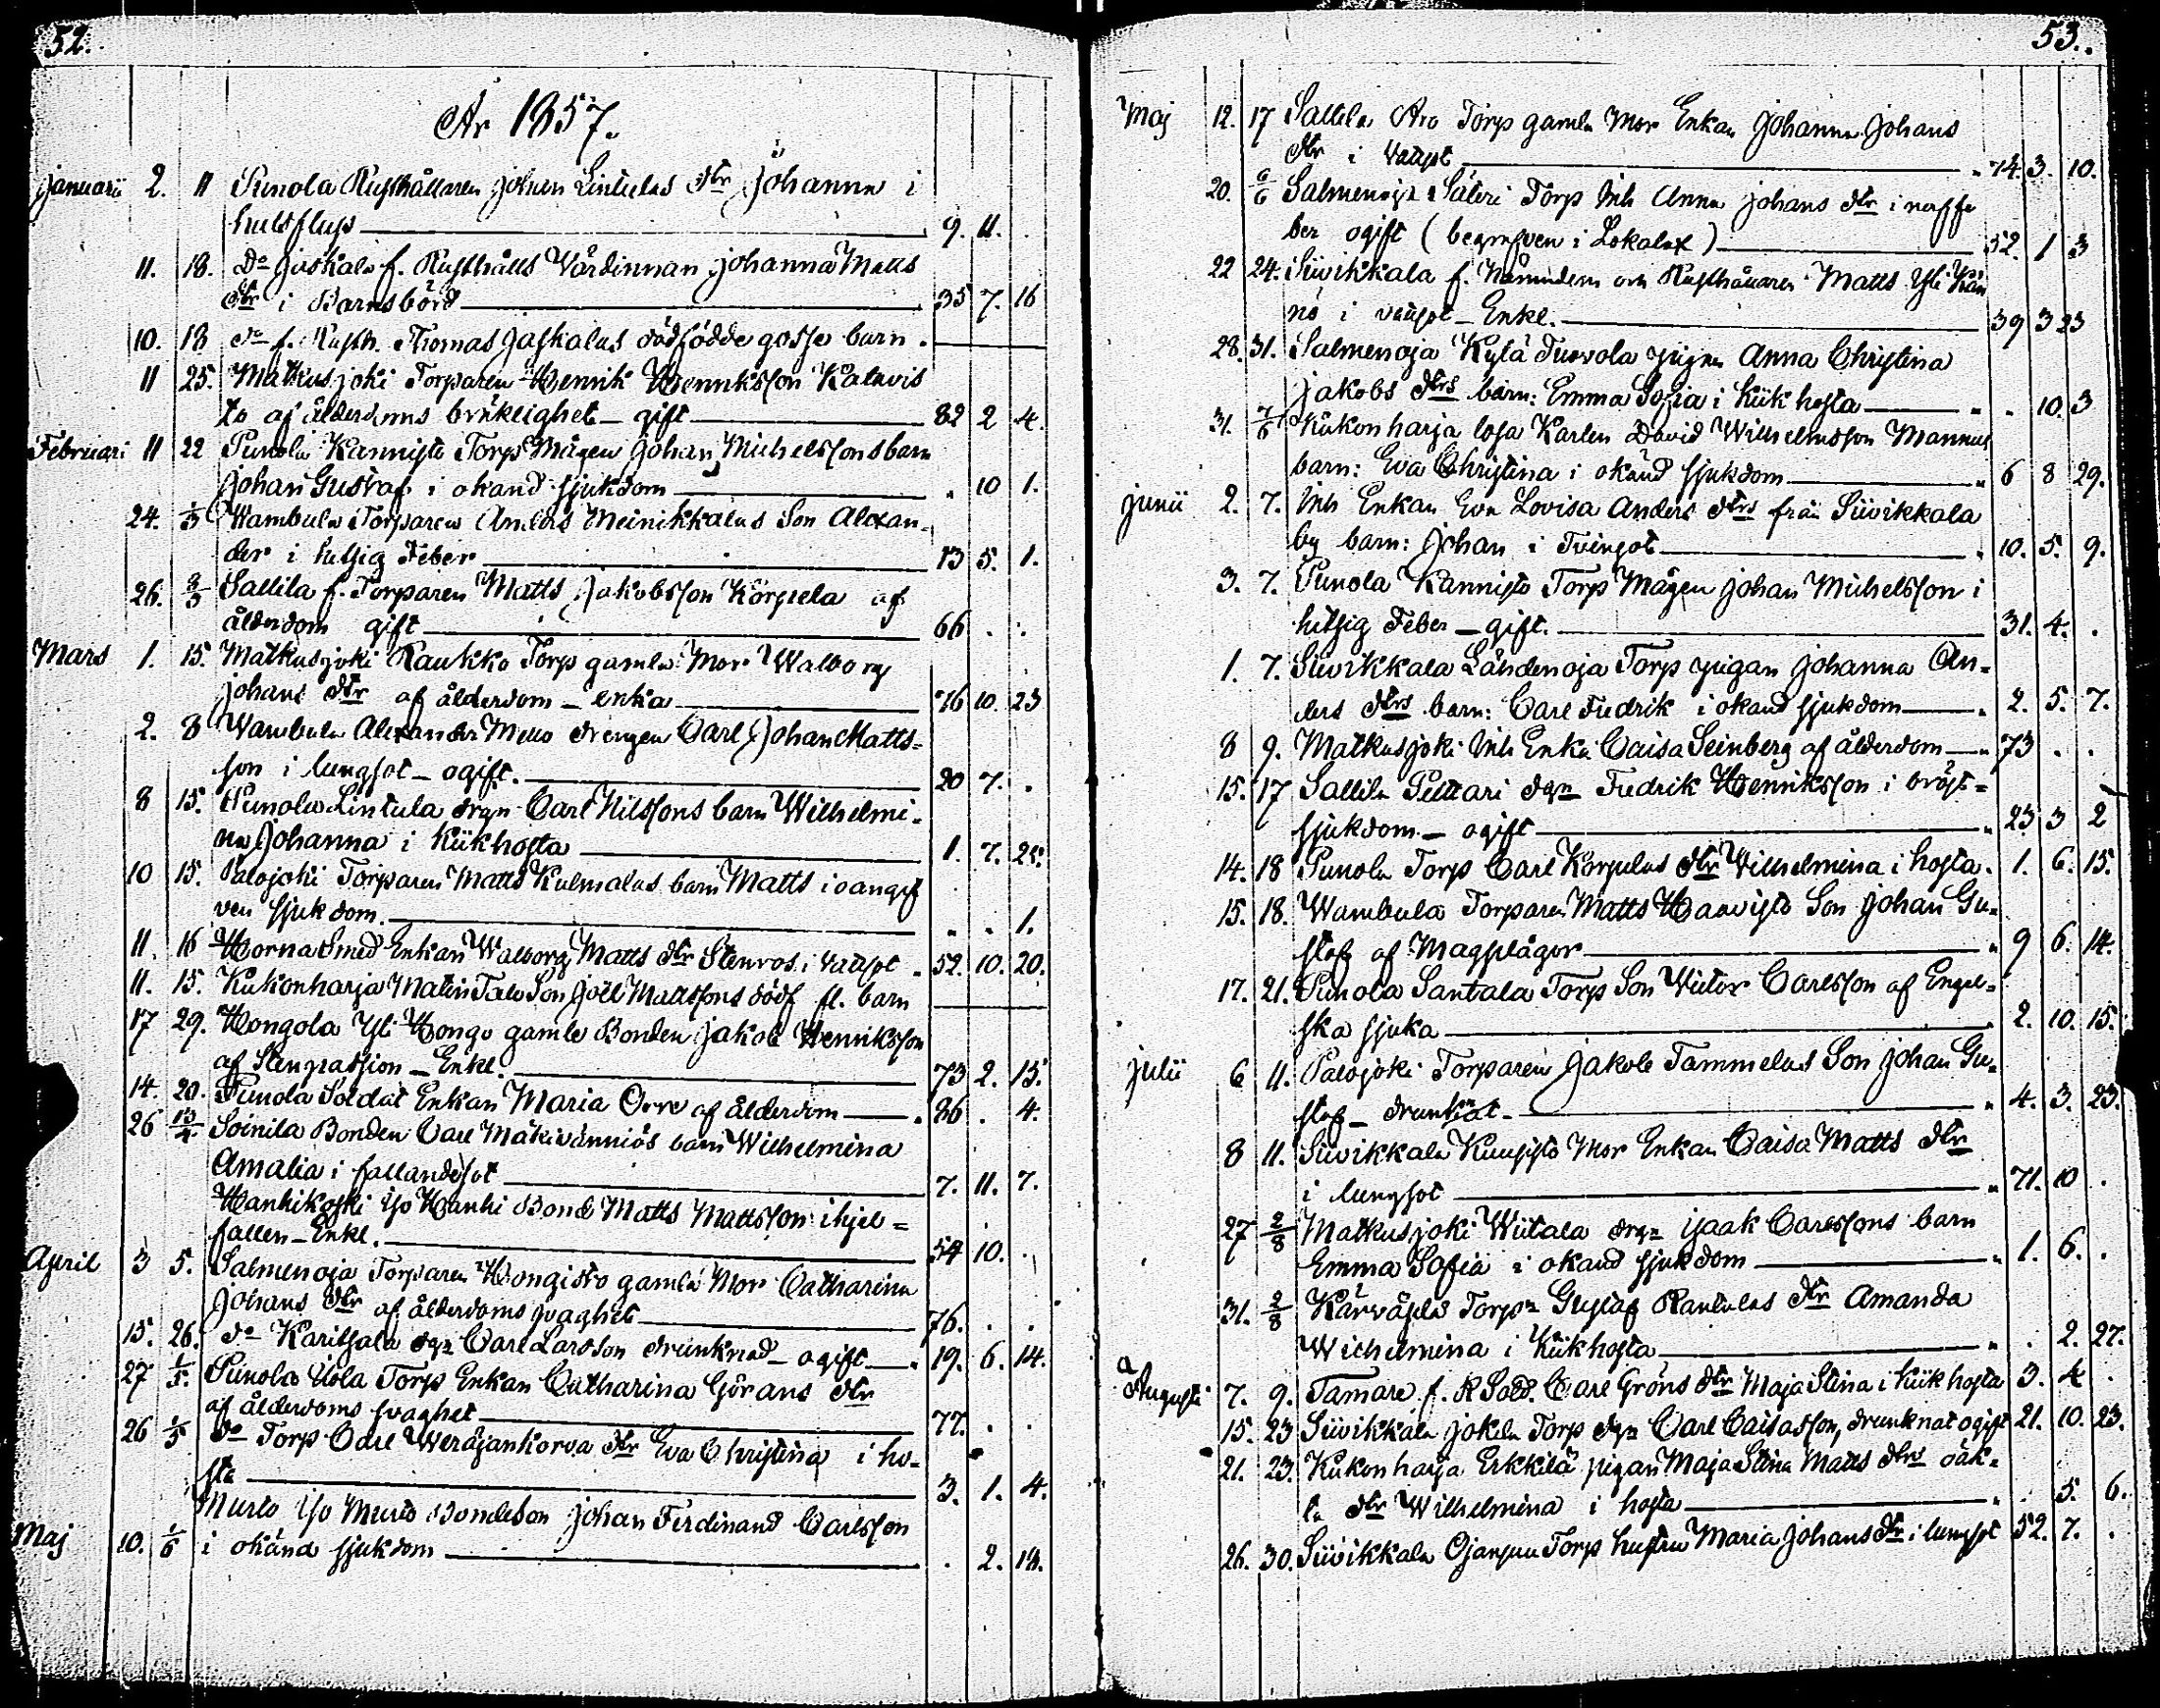 52.
År 1857.
Januarii 2. 11 Punola Rusthållaren Johan Lintulas dtr Johanna i
halsfluss 9. 11. .
11. 18. Do Jaskala f. Rusthålls Värdinnan Johanna Matts
dtr i Barnsbörd 35 7. 16
10. 18 do f. Rusth. Thomas Jaskalas dödfödde gosse barn.
11 25. Matkusjoki Torparen Henrik Henriksson Katavis
to af ålderdoms bräklighet – gift 82 2 4.
Februari 11 22 Punola Kannisto Torps Mågen Johan Michelssons barn
Johan Gustaf i okänd sjukdom " 10 1.
24. 1/3 Wambula Torparens Anders Meinikkalas Son Alexan-
der i hetsig Feber 13 5. 1.
26. 8/3 Sallila f. Torparen Matts Jakobsson Korpela af
ålderdom gift 66 . .
Mars 1. 15. Matkusjoki Raukko Torp gamla Mor Walborg
Johans dtr af ålderdom – enka 76 10. 23
2. 8 Wambula Alexander Mello drengen Carl Johan Matts-
son i lungsot – ogift. 20 7. .
8 15. Punola Lintula drgn Carl Nilssons barn Wilhelmi-
na Johanna i Kikhosta 1. 7. 28.
10 15. Palojoki Torparen Matts Kulmalas barn Matts i oangif
ven sjukdom. . . 1.
11. 16 Horna Smed Enkan Walborg Matts dtr Stenros i vattsot 52. 10. 20.
11. 15. Kukonharja Matin Talo Son Joel Mattssons dödf. fl. barn
17 29. Hongola Yli Hongo gamle Bonden Jakob Henriksson
af Stenpassion – Enkl. 73 2. 15.
14. 20. Punola Soldat Enkan Maria Orre af ålderdom 86 . 4.
26 13/4 Soinila Bonden Carl Mäkivänniös barn Wilhelmina
Amalia i fallandesot 7. 11. 7.
Hanhikoski Iso Hanhi Bond Matts Mattsson ihjel-
fallen – Enkl. 54 10. .
April 3 5. Salmenoja Torparen Hongisto gamla Mor Catharina
Johans dtr af ålderdoms svaghet 76. . .
15. 26. do Karitsala dgn Carl Larsson drunknad – ogift 19. 6. 14.
27 1/5. Punola Uola Torp Enkan Catharina Görans dtr
af ålderdoms svaghet 77. . .
26 1/5 do Torp Carl Weräjänkorva dtr Eva Christina i ho-
sta 3. 1. 4.
Murto Iso Murto Bondeson Johan Ferdinand Carlsson
Maj 10. 1/6 i okänd sjukdom . 2. 14.
53.
Maj 12. 17 Sallila Aro Torps gamla Mor Enkan Johanna Johans
dtr i vattsot 74. 3. 10.
20. 6/6 Salmenoja Säteri Torps Inh Anna Johans dtr i nerffe
ber ogift (begrafven i Lokalax) 52. 1 3
22 24. Siivikkala f. Nämndem och Rusthållaren Matts Yli Kän
nö i vattsot – Enkl. 39 3 23
28. 31. Salmenoja Kylä Tuovola pigan Anna Christina
Jakobs dtrs barn: Emma Sofia i Kikhosta " . 10. 3
31. 7/6 Kukonharja losa Karlen David Wilhelmsson Mannus
barn: Eva Christina i okänd sjukdom 6 8 29.
Junii 2. 7. Inh Enkan Eva Lovisa Anders dtrs från Siivikkala
by barn: Johan i Tvinsot 10. 5. 9.
3. 7. Punola Kannisto Torps Mågen Johan Michelsson i
hetsig Feber – gift. 31. 4. .
1. 7. Siivikkala Lähdenoja Torp pigan Johanna An-
ders dtrs barn: Carl Fredrik i okänd sjukdom 2. 5. 7.
8 9. Matkusjoki Inh Enka Caisa Seinberg af ålderdom 73 . .
15. 17 Sallila Pelttari dgn Fredrik Henriksson i bröst-
sjukdom – ogift 23 3 2
14. 18 Punola Torp Carl Korpulas dtr Wilhelmina i hosta. 1. 6. 15.
15. 18. Wambula Torparen Matts Haavisto Son Johan Gu-
staf af Magplågor 9 6. 14.
17. 21. Punola Santala Torp Son Victor Carlsson af Engel-
ska sjuka 2. 10. 15.
Julii 6 11. Palojoki Torparen Jakob Tammelas Son Johan Gu-
staf – drunknat. 4. 3. 23.
8 11. Siivikkala Kuusisto Mor Enkan Caisa Matts dtr
i lungsot 71. 10 .
27 2/8 Matkusjoki Wiitala drgn Isaak Carlssons barn
Emma Sofia i okänd sjukdom 1. 6. .
31. 2/8 Kärväselä Torpn Gustaf Rantalas dtr Amanda
Wilhelmina i Kikhosta . 2. 27.
Augusti 7. 9. Tamare f. R Sold. Carl Gröns dtr Maja Stina i kikhosta 3. 4 .
15. 23 Siivikkala Jokela Torp dgn Carl Caisasson, drunknat ogift 21. 10. 23.
21. 23. Kukonharja Erkkilä pigan Maja Stina Matts dtrs oäk-
ta dtr Wilhelmina i hosta . 5. 6.
26. 30. Siivikkala Ojanpuu Torp hustru Maria Johans dtr i lungsot 52. 7. .